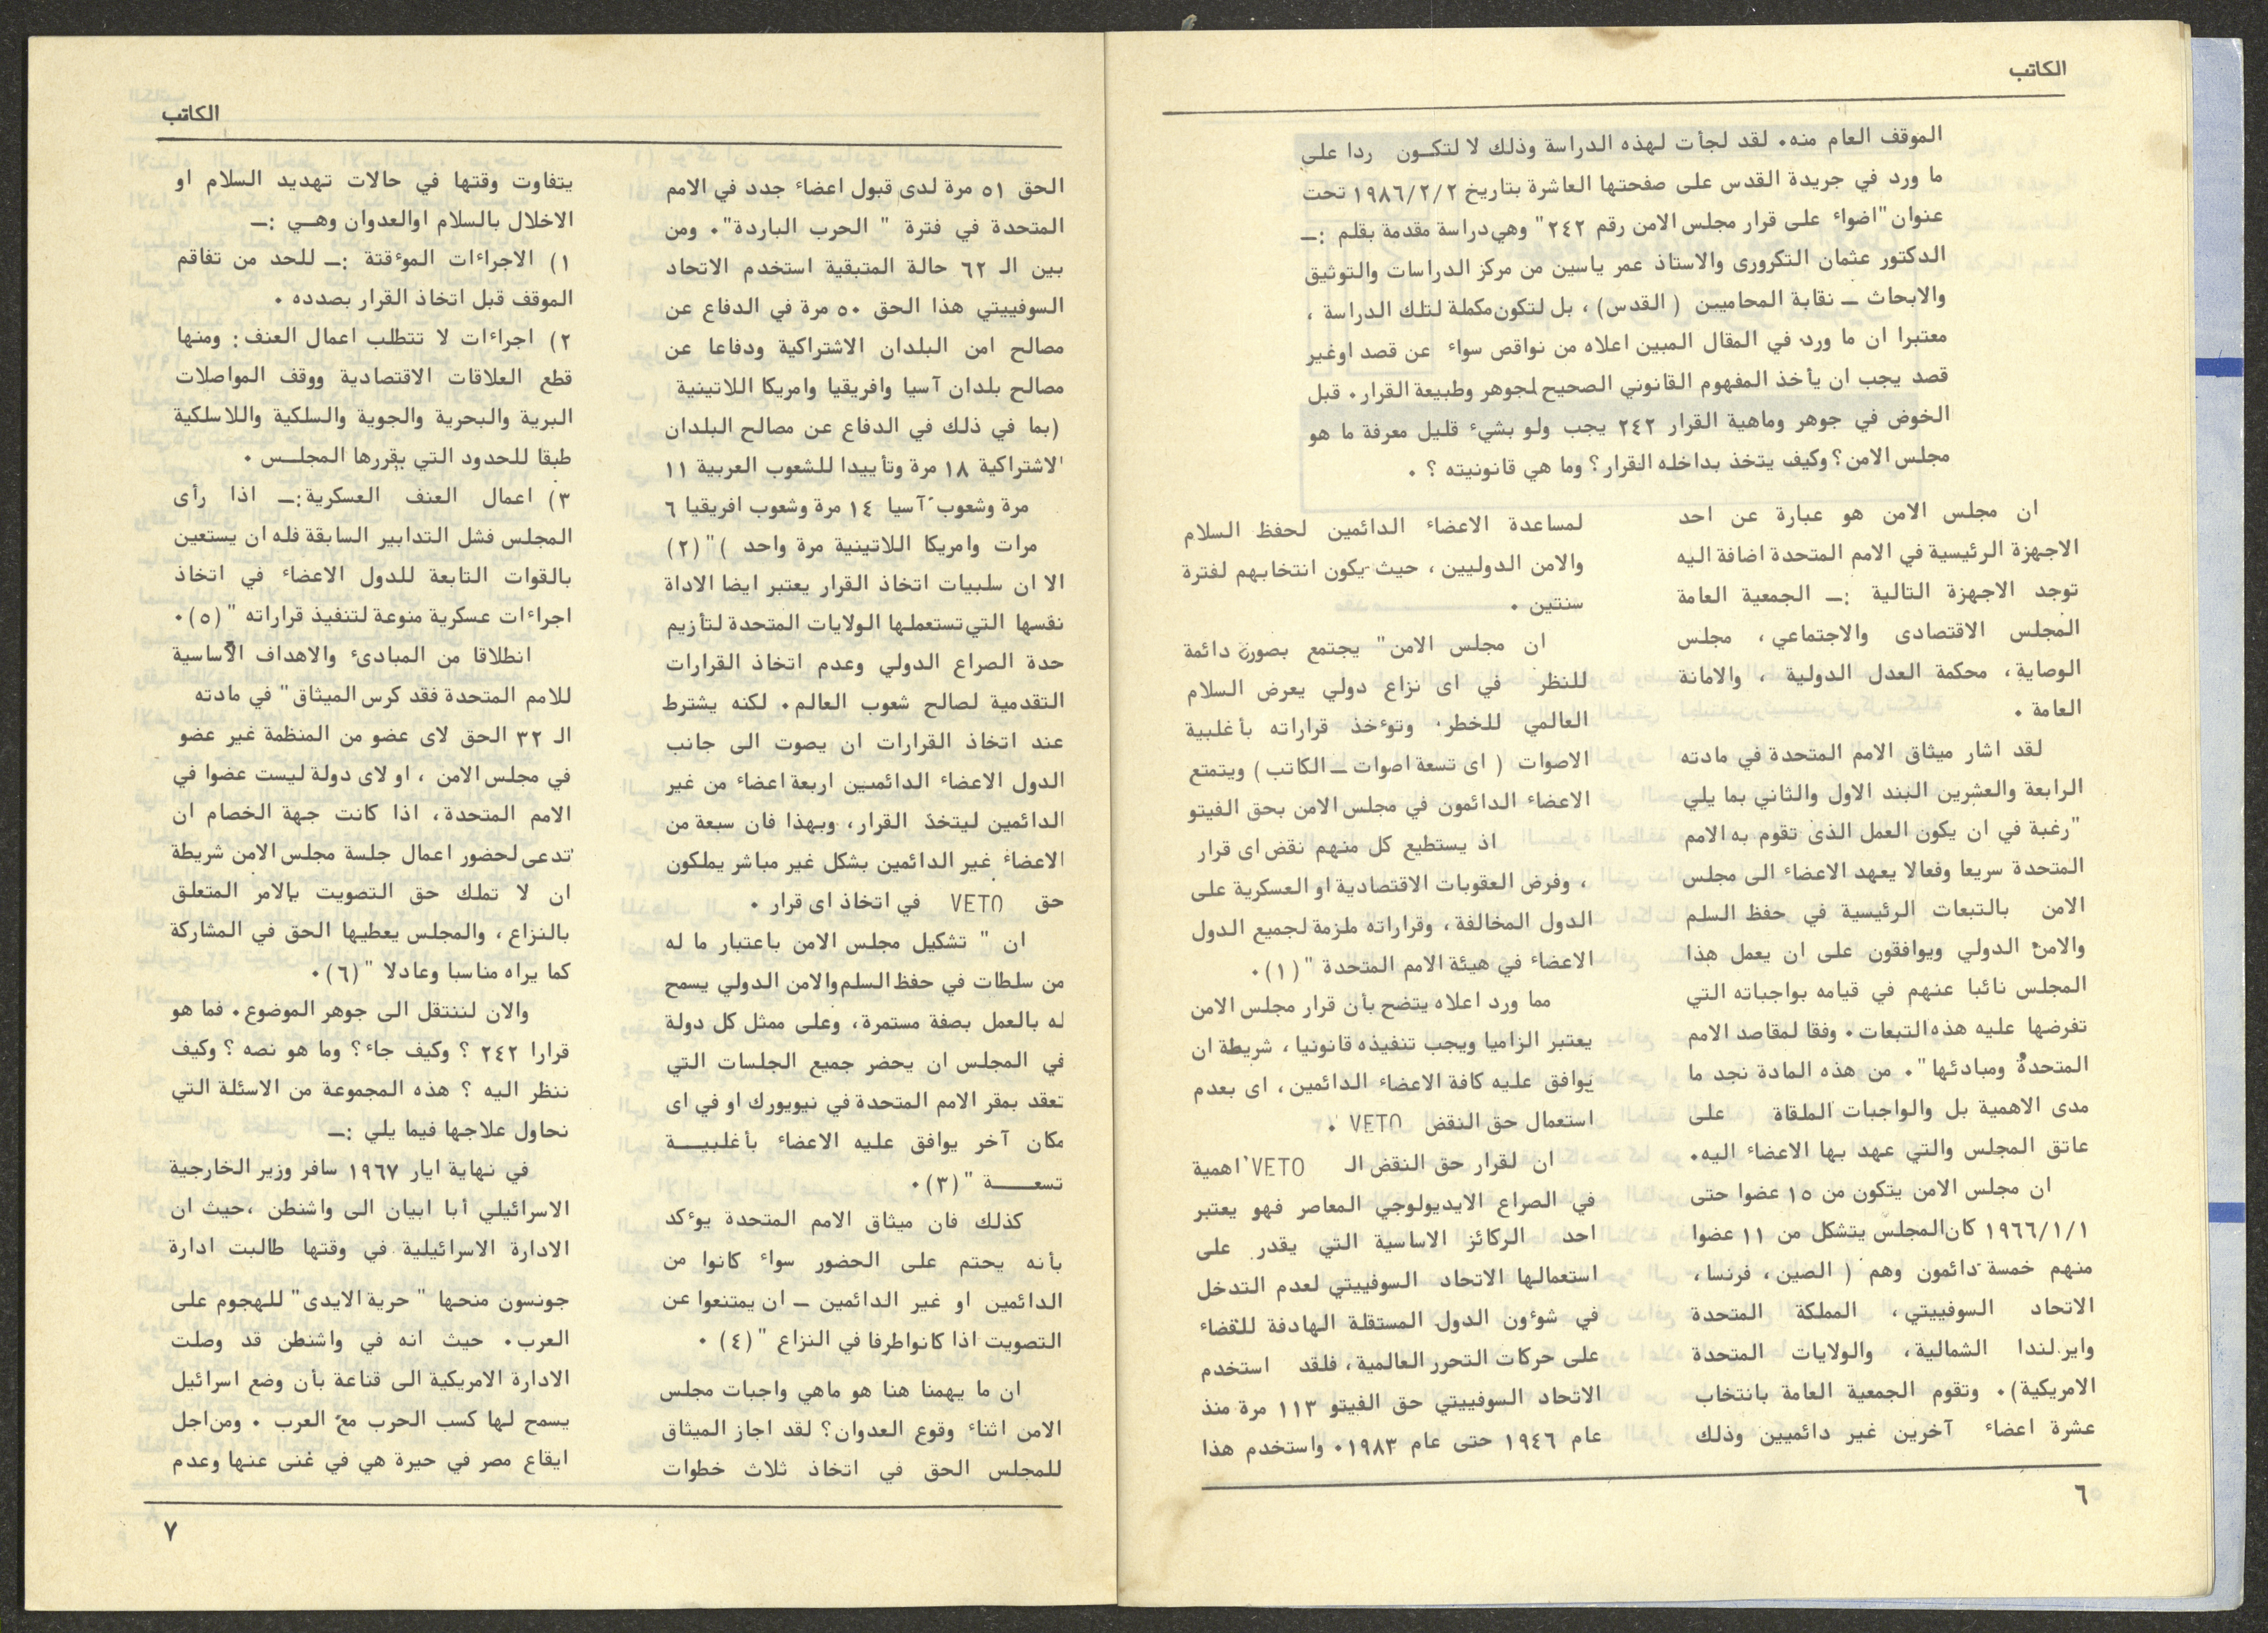 الكاتب
الموقف العام منه. لقد لجأت لهذه الدراسة وذلك لا لتكـون ردا على
ما ورد في جريدة القدس على صفحتها العاشرة بتاريخ ١٩٨٦/٢/٢ تحت
عنوان "اضواء على قرار مجلس الامن رقم ٢٤٢" وهي دراسة مقدمة بقلم :ـ
الدكتور عثمان التكرورى والاستاذ عمر ياسين من مركز الدراسات والتوثيق
والابحاث ـ نقابة المحاميين ( القدس) ، بل لتكون مكملة لتلك الدراسة ،
معتبرا ان ما ورد في المقال المبين اعلاه من نواقص سواء عن قصد اوغير
قصد يجب ان يأخذ المفهوم القانوني الصحيح لجوهر وطبيعة القرار. قبل
الخوض في جوهر وماهية القرار ٢٤٢ يجب ولو بشيء قليل معرفة ما هو
مجلس الامن؟ وكيف يتخذ بداخله القرار؟ وما هي قانونيته ؟ .
ان مجلس الامن هو عبارة عن احد
الاجهزة الرئيسية في الامم المتحدة اضافة اليه
توجد الاجهزة التالية :ـ الجمعية العامة
المجلس الاقتصادى والاجتماعي ، مجلس
الوصاية، محكمة العدل الدولية ، والامانة
العامة .
لقد اشار ميثاق الامم المتحدة في مادته
الرابعة والعشرين البند الاول والثاني بما يلي
"رغبة في ان يكون العمل الذى تقوم به الامم
المتحدة سريعا وفعالا يعهد الاعضاء الى مجلس
الامن بالتبعات الرئيسية في حفظ السلم
والامن الدولي ويوافقون على ان يعمل هذا
المجلس نائبا عنهم في قيامه بواجباته التي
تفرضها عليه هذه التبعات. وفقا لمقاصد الامم
المتحدة ومبادئها ". من هذه المادة نجد ما
مدى الاهمية بل والواجبات الملقاة على
عاتق المجلس والتي عهد بها الاعضاء اليه.
ان مجلس الامن يتكون من ١٥ عضوا حتى
١٩٦٦/١/١ كان المجلس يتشكل من ١١ عضوا
منهم خمسة دائمون وهم ( الصين ، فرنسا ،
الاتحاد السوفييتي، المملكة المتحدة
وايرلندا الشمالية، والولايات المتحدة
الامريكية). وتقوم الجمعية العامة بانتخاب
عشرة اعضاء آخرين غير دائميين وذلك
لمساعدة الاعضاء الدائمين لحفظ السلام
والامن الدوليين ، حيث يكون انتخابهم لفترة
سنتين .
ان مجلس الامن" يجتمع بصورة دائمة
للنظر في اى نزاع دولي يعرض السلام
العالمي للخطر وتوءخذ قراراته بأغلبية
الاصوات ( اى تسعة اصوات ـ الكاتب ) ويتمتع
الاعضاء الدائمون في مجلس الامن بحق الفيتو
اذ يستطيع كل منهم نقض اى قرار
، وفرض العقوبات الاقتصادية او العسكرية على
الدول المخالفة ، وقراراته ملزمة لجميع الدول
الاعضاء في هيئة الامم المتحدة " (١).
مما ورد اعلاه يتضح بأن قرار مجلس الامن
يعتبر الزاميا ويجب تنفيذه قانونيا ، شريطة ان
يوافق عليه كافة الاعضاء الدائمين ، اى بعدم
استعمال حق النقض VETO .
ان لقرار حق النقض الـ VETO اهمية
في الصراع الايديولوجي المعاصر فهو يعتبر
احد الركائز الاساسية التي يقدر على
استعمالها الاتحاد السوفييتي لعدم التدخل
في شوءون الدول المستقلة الهادفة للقضاء
على حركات التحرر العالمية ، فلقد استخدم
الاتحاد السوفييتي حق الفيتو ١١٣ مرة منذ
عام ١٩٤٦ حتى عام ١٩٨٣. واستخدم هذا
٦
الكاتب
الحق ٥١ مرة لدى قبول اعضاء جدد في الامم
المتحدة في فترة " الحرب الباردة". ومن
بين الـ ٦٢ حالة المتبقية استخدم الاتحاد
السوفييتي هذا الحق ٥٠ مرة في الدفاع عن
مصالح امن البلدان الاشتراكية ودفاعا عن
مصالح بلدان آسيا وافريقيا وامريكا اللاتينية
(بما في ذلك في الدفاع عن مصالح البلدان
الاشتراكية ١٨ مرة وتأييدا للشعوب العربية ١١
مرة وشعوب آسيا ١٤ مرة وشعوب افريقيا ٦
مرات وامريكا اللاتينية مرة واحد )"(٢)
الا ان سلبيات اتخاذ القرار يعتبر ايضا الاداة
نفسها التي تستعملها الولايات المتحدة لتأزيم
حدة الصراع الدولي وعدم اتخاذ القرارات
التقدمية لصالح شعوب العالم. لكنه يشترط
عند اتخاذ القرارات ان يصوت الى جانب
الدول الاعضاء الدائمين اربعة اعضاء من غير
الدائمين ليتخذ القرار، وبهذا فان سبعة من
الاعضاء غير الدائمين بشكل غير مباشر يملكون
حق VETO في اتخاذ اى قرار .
ان " تشكيل مجلس الامن باعتبار ما له
من سلطات في حفظ السلم والامن الدولي يسمح
له بالعمل بصفة مستمرة، وعلى ممثل كل دولة
في المجلس ان يحضر جميع الجلسات التي
تعقد بمقر الامم المتحدة في نيويورك او في اى
مكان آخر يوافق عليه الاعضاء بأغلبيـــة
تسعــــة "(٣).
كذلك فان ميثاق الامم المتحدة يوءكد
بأنه يحتم على الحضور سواء كانوا من
الدائمين او غير الدائمين ـ ان يمتنعوا عن
التصويت اذا كانوا طرفا في النزاع "(٤) .
ان ما يهمنا هنا هو ماهي واجبات مجلس
الامن اثناء وقوع العدوان؟ لقد اجاز الميثاق
للمجلس الحق في اتخاذ ثلاث خطوات
يتفاوت وقتها في حالات تهديد السلام او
الاخلال بالسلام اوالعدوان وهـي :ـ
١) الاجراءات الموءقتة :ـ للحد من تفاقم
الموقف قبل اتخاذ القرار بصدده .
٢) اجراءات لا تتطلب اعمال العنف: ومنها
قطع العلاقات الاقتصادية ووقف المواصلات
البرية والبحرية والجوية والسلكية واللاسلكية
طبقا للحدود التي يقررها المجلــس .
٣) اعمال العنف العسكرية:ـ اذا رأى
المجلس فشل التدابير السابقة فله ان يستعين
بالقوات التابعة للدول الاعضاء في اتخاذ
اجراءات عسكرية منوعة لتنفيذ قراراته "(٥).
انطلاقا من المبادىء والاهداف الأساسية
للامم المتحدة فقد كرس الميثاق" في مادته
الـ ٣٢ الحق لاى عضو من المنظمة غير عضو
في مجلس الامن ، او لاى دولة ليست عضوا في
الامم المتحدة، اذا كانت جهة الخصام ان
تدعى لحضور اعمال جلسة مجلس الامن شريطة
ان لا تملك حق التصويت بالامر المتعلق
بالنزاع ، والمجلس يعطيها الحق في المشاركة
كما يراه مناسبا وعادلا "(٦).
والان لننتقل الى جوهر الموضوع. فما هو
قرارا ٢٤٢ ؟ وكيف جاء؟ وما هو نصه ؟ وكيف
ننظر اليه ؟ هذه المجموعة من الاسئلة التي
نحاول علاجها فيما يلي :ـ
في نهاية ايار ١٩٦٧ سافر وزير الخارجية
الاسرائيلي أبا ابيان الى واشنطن ،حيث ان
الادارة الاسرائيلية في وقتها طالبت ادارة
جونسون منحها " حرية الايدى" للهجوم على
العرب. حيث انه في واشنطن قد وصلت
الادارة الامريكية الى قناعة بأن وضع اسرائيل
يسمح لها كسب الحرب مع العرب . ومن اجل
ايقاع مصر في حيرة هي في غنى عنها وعدم
٧